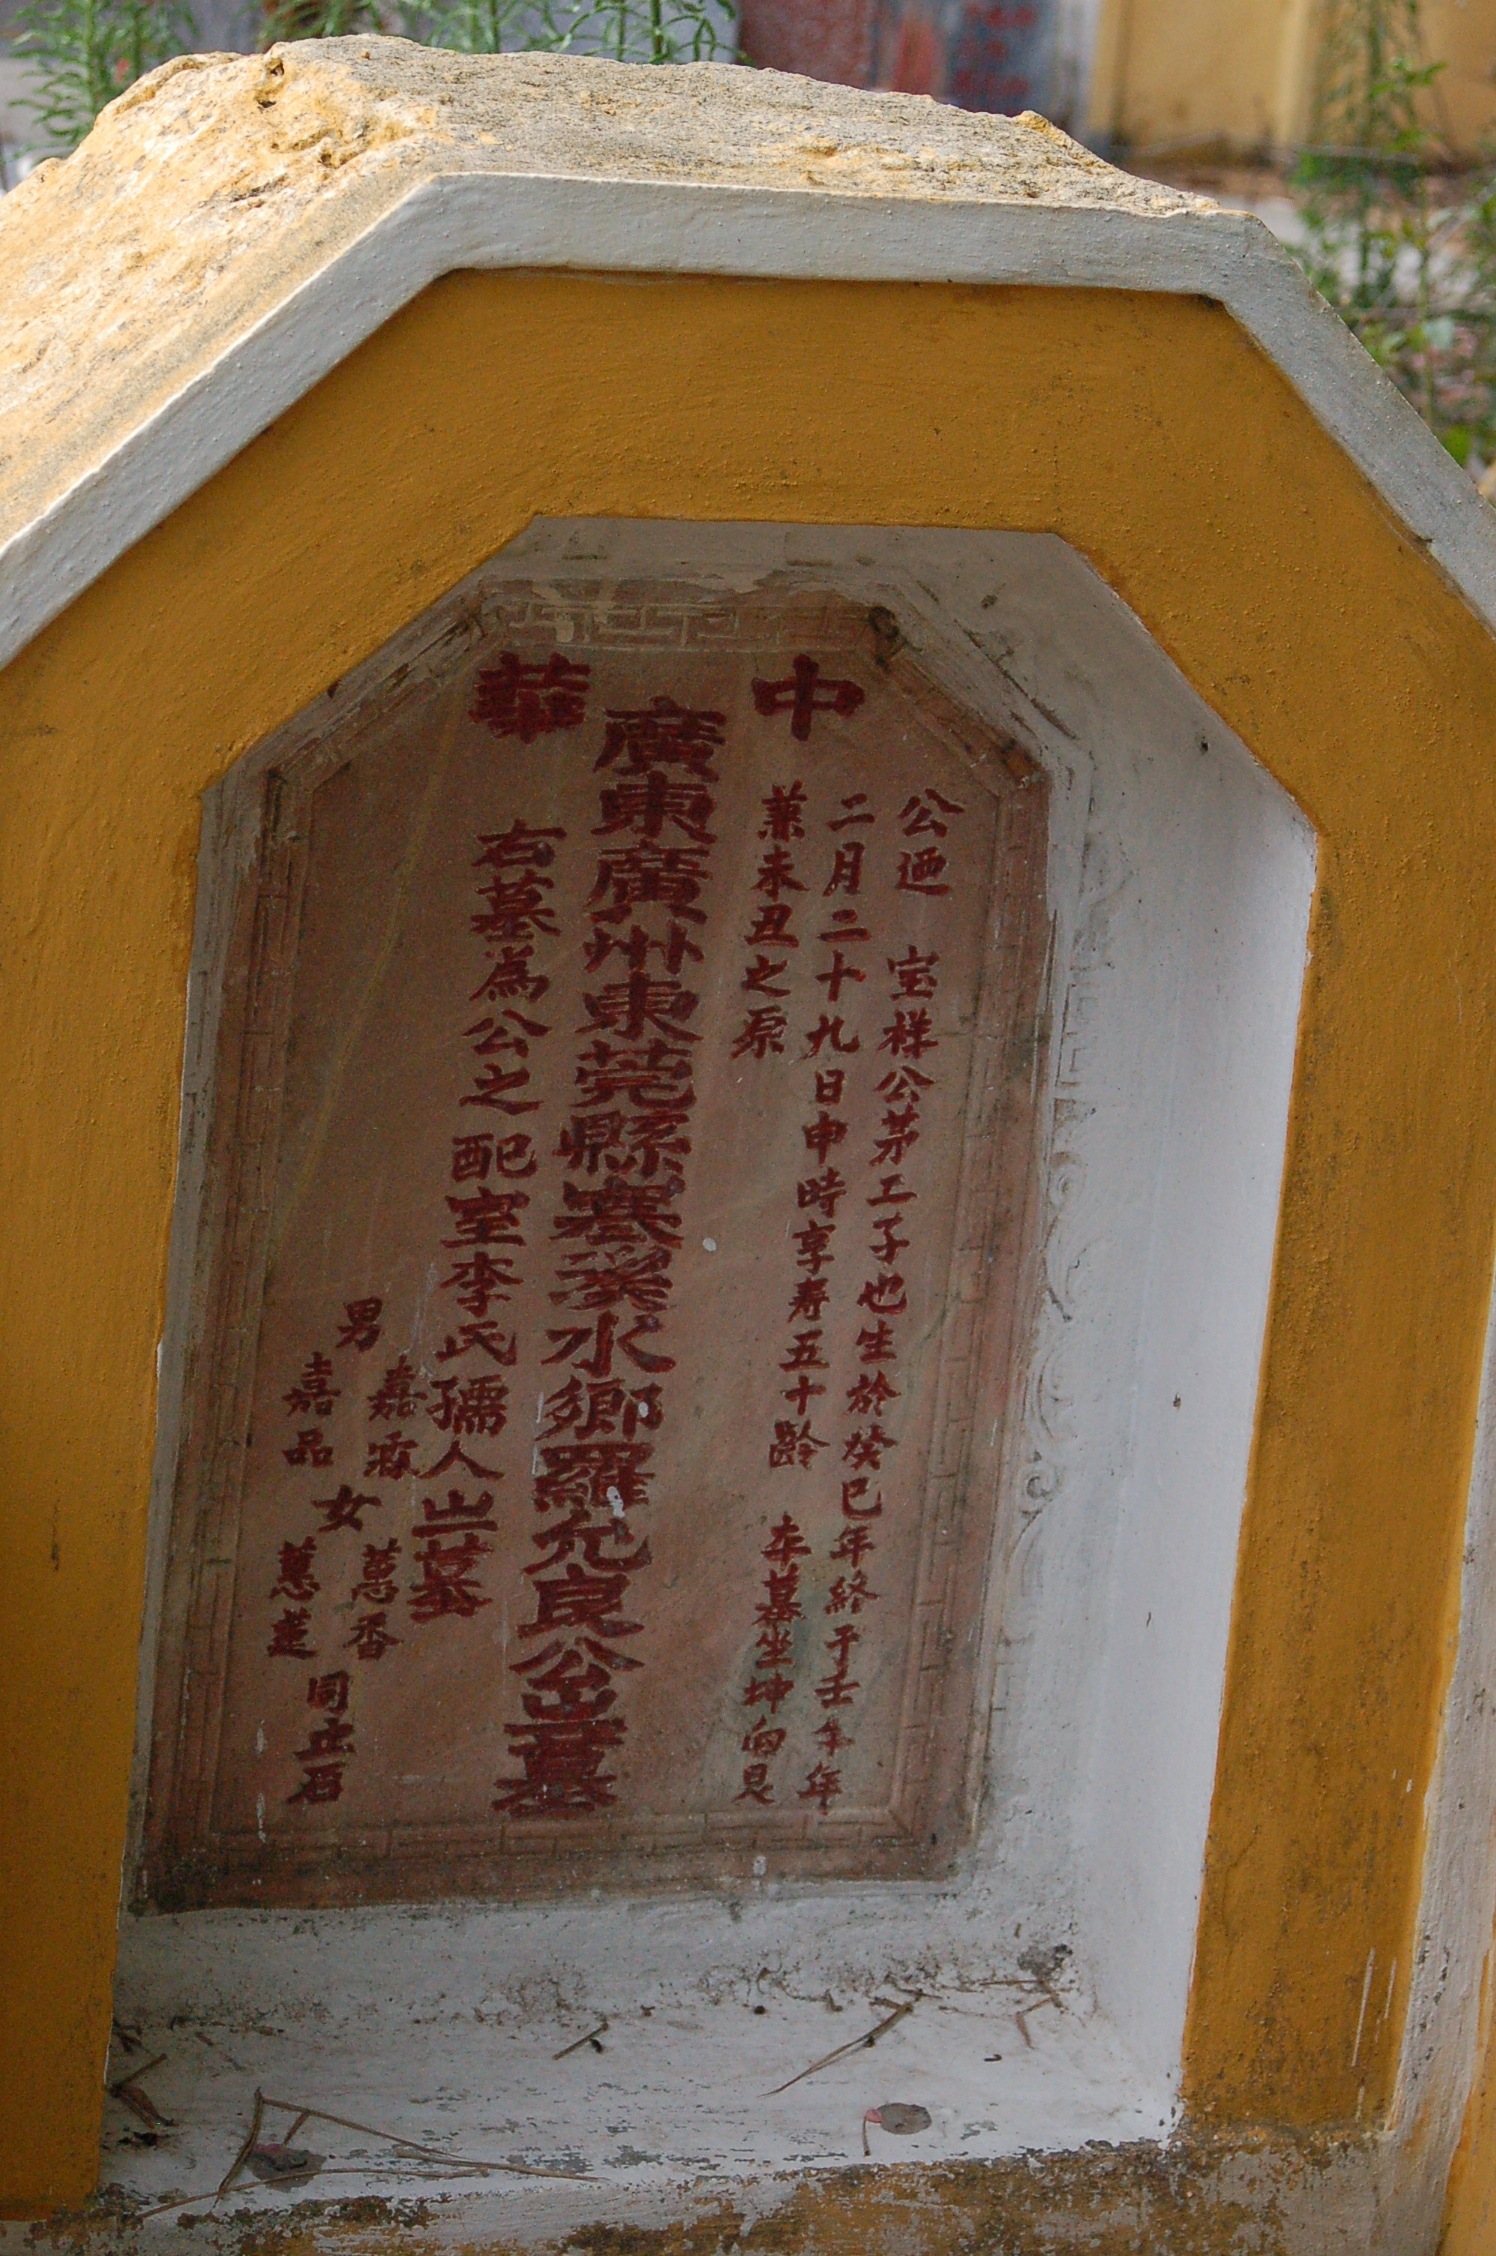 中華
公迺 宝样公苐工子也生於癸巳年終于壬午年
二月二十九日申時享寿五十齡 本墓坐坤向艮
兼未丑之原
廣東廣州東莞縣寨溪水鄉羅允良公之墓
右墓為公之配室李氏孺人之墓
男 嘉霖 嘉品 女 蕙香 蕙蓮 同立石